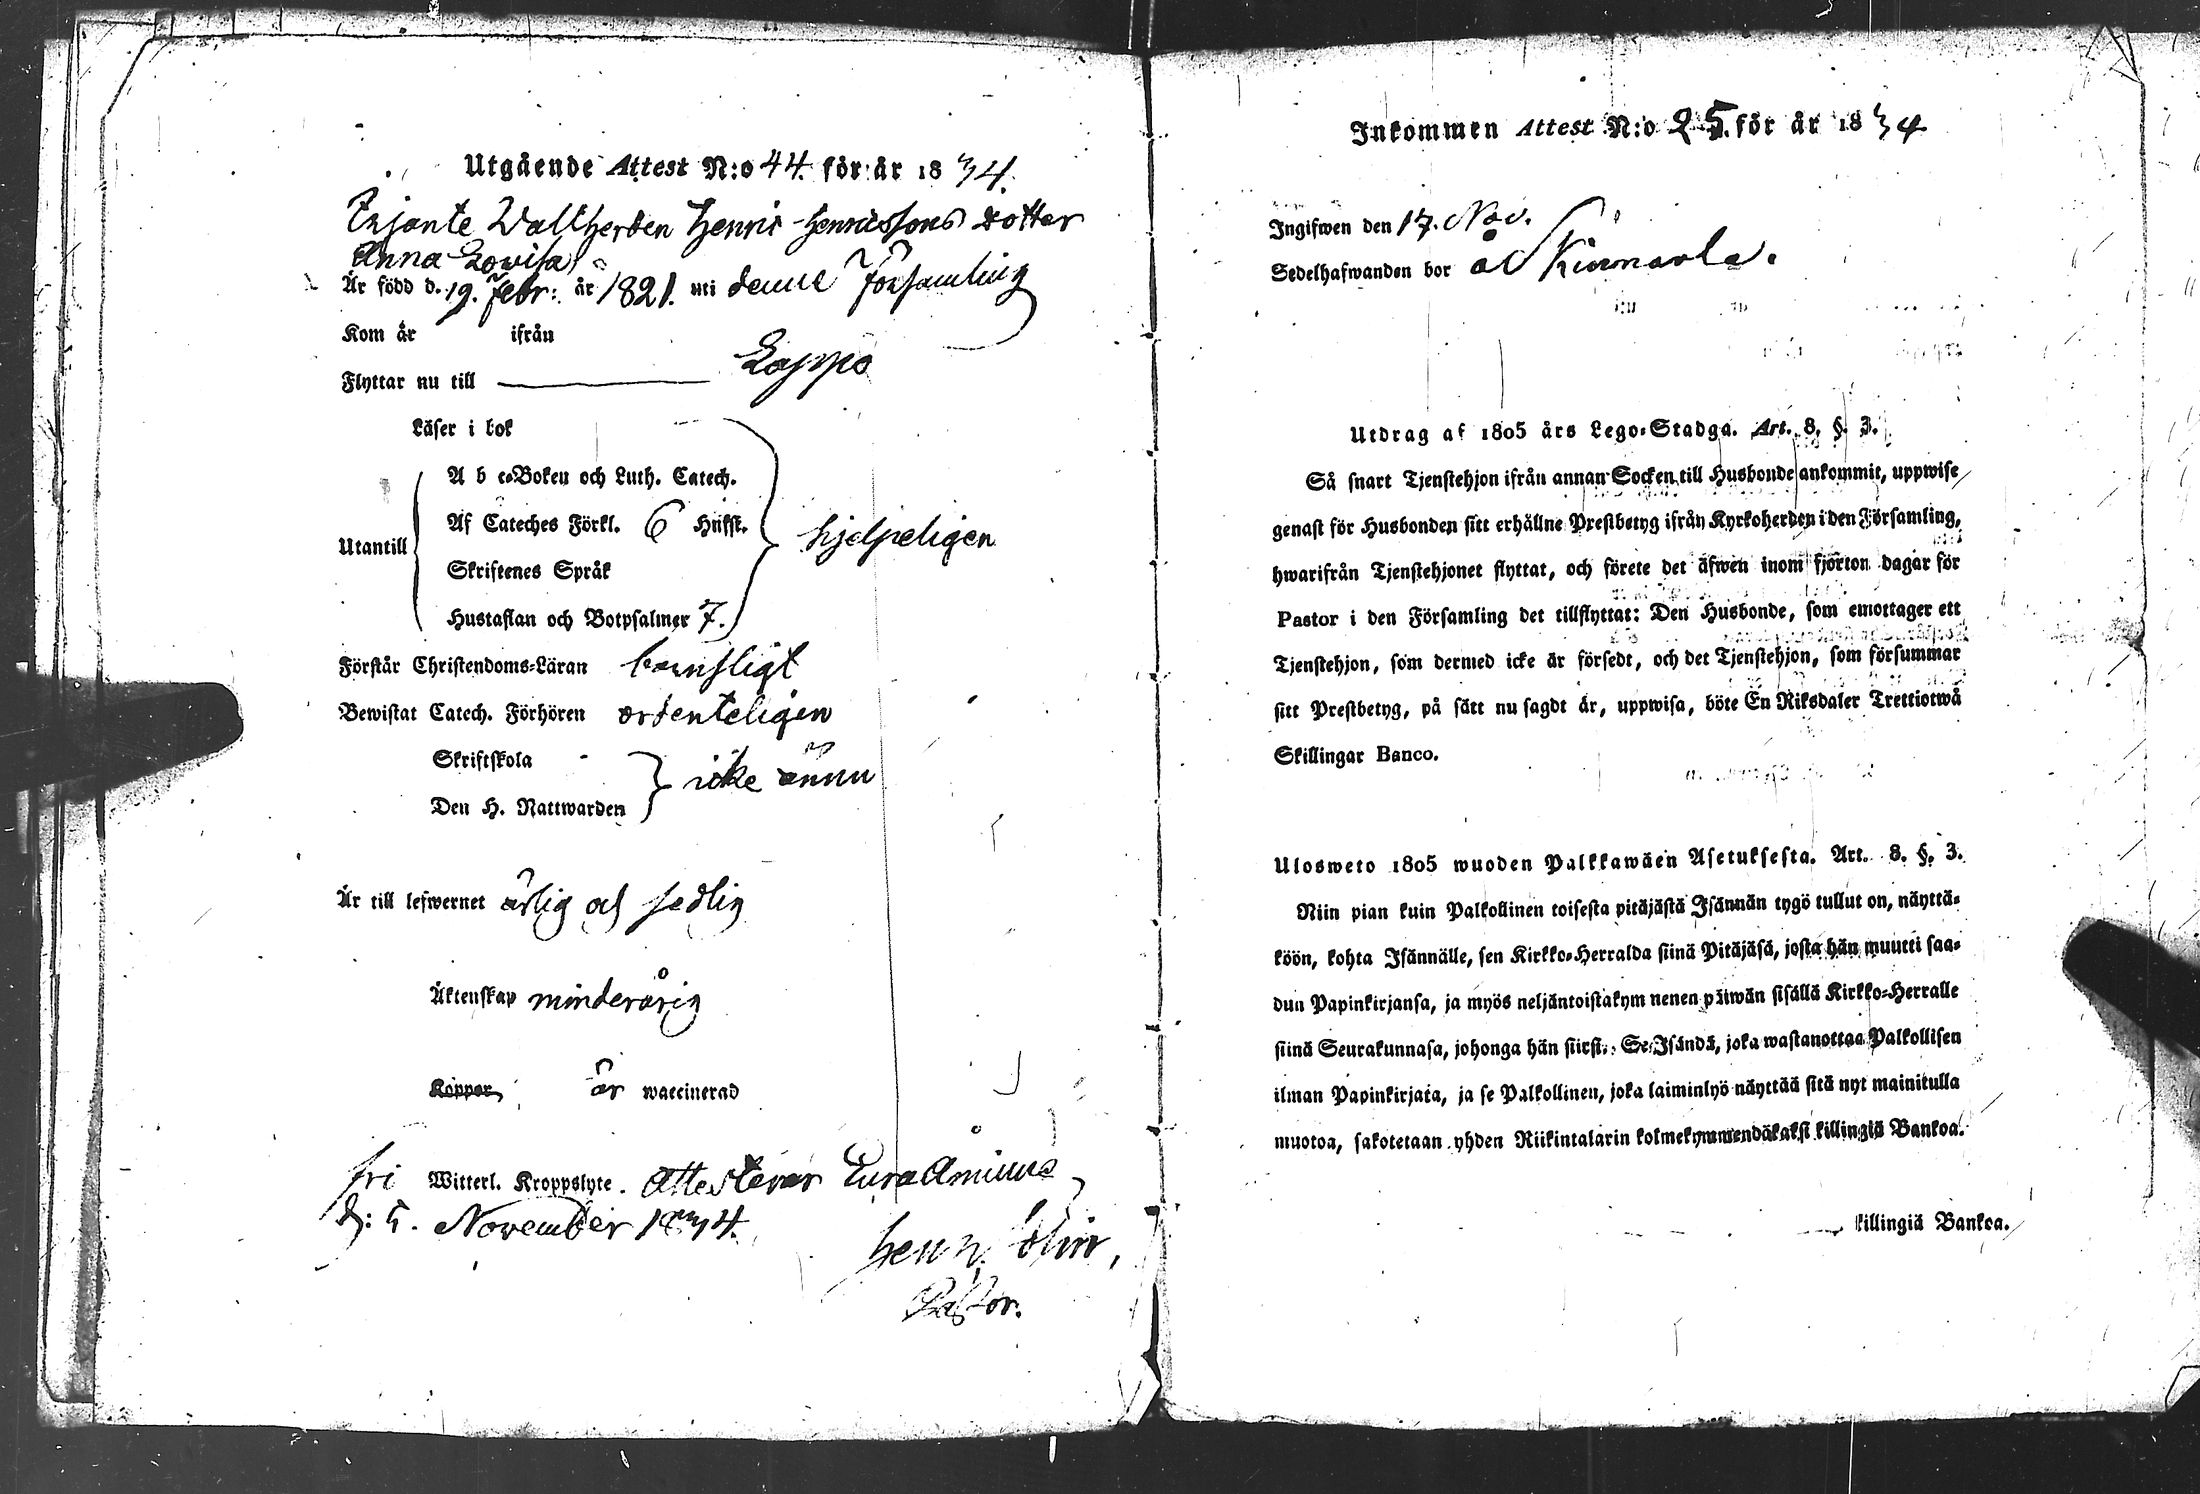 Utgående Attest N:o 44. för år 1834.
Enjante Wallherden Henric Henricssons dotter
Anna Lowisa
Är född d. 19. Febr: år 1821. uti denne Församling
Kom år ifrån
Flyttar nu till Loppo
Läser i bok
A b c-Boken och Luth. Catech.
Af Cateches Förkl. 6 Hufst.
Utantill hjelpeligen
Skriftenes Språk
Hustaflan och Botpsalmer 7.
Förstår Christendoms-Läran barnsligt
Bewistat Catech. Förhören ordenteligen
Skriftskola
icke ännu
Den H. Nattwarden
Är till lefwernet ärlig och sedlig
Äktenskap minderårig
Koppor, är waccinerad
fri Witterl. Kroppslyte. Attesterar Eura Åminne
d: 5. November 1834.
Pastor.
Inkommen Attest N:o 25. för år 1834
Ingifwen den 17. Nov.
Sedelhafwanden bor å Kinnarla.
Utdrag af 1805 års Lego-Stadga. Art. 8. §. 3.
Så snart Tjenstehjon ifrån annan Socken till Husbonde ankommit, uppwise
genast för Husbonden sitt erhållne Prestbetyg ifrån Kyrkoherden i den Församling,
hwarifrån Tjenstehjonet flyttat, och förete det äfwen inom fjorton dagar för
Pastor i den Församling det tillflyttat: Den Husbonde, som emottager ett
Tjenstehjon, som dermed icke är försedt, och det Tjenstehjon, som försummar
sitt Prestbetyg, på sätt nu sagdt är, uppwisa, böte En Riksdaler Trettiotwå
Skillingar Banco.
Ulosweto 1805 wuoden Palkkawäen Asetuksesta. Art. 8. §. 3.
Niin pian kuin Palkollinen toisesta pitäjästä Isännän tygö tullut on, näyttä-
köön, kohta Isännälle, sen Kirkko-Herralda siinä Pitäjäsä, josta hän muutti saa-
dun Papinkirjansa, ja myös neljäntoistakym nenen päiwän sisällä Kirkko-Herralle
siinä Seurakunnasa, johonga hän siirsi. Se Isändä, joka wastanottaa Palkollisen
ilman Papinkirjata, ja se Palkollinen, joka laiminlyö näyttää sitä nyt mainitulla
muotoa, sakotetaan yhden Riikintalarin kolmekymmendäkaksi killingiä Bankoa.
killingiä Bankoa.